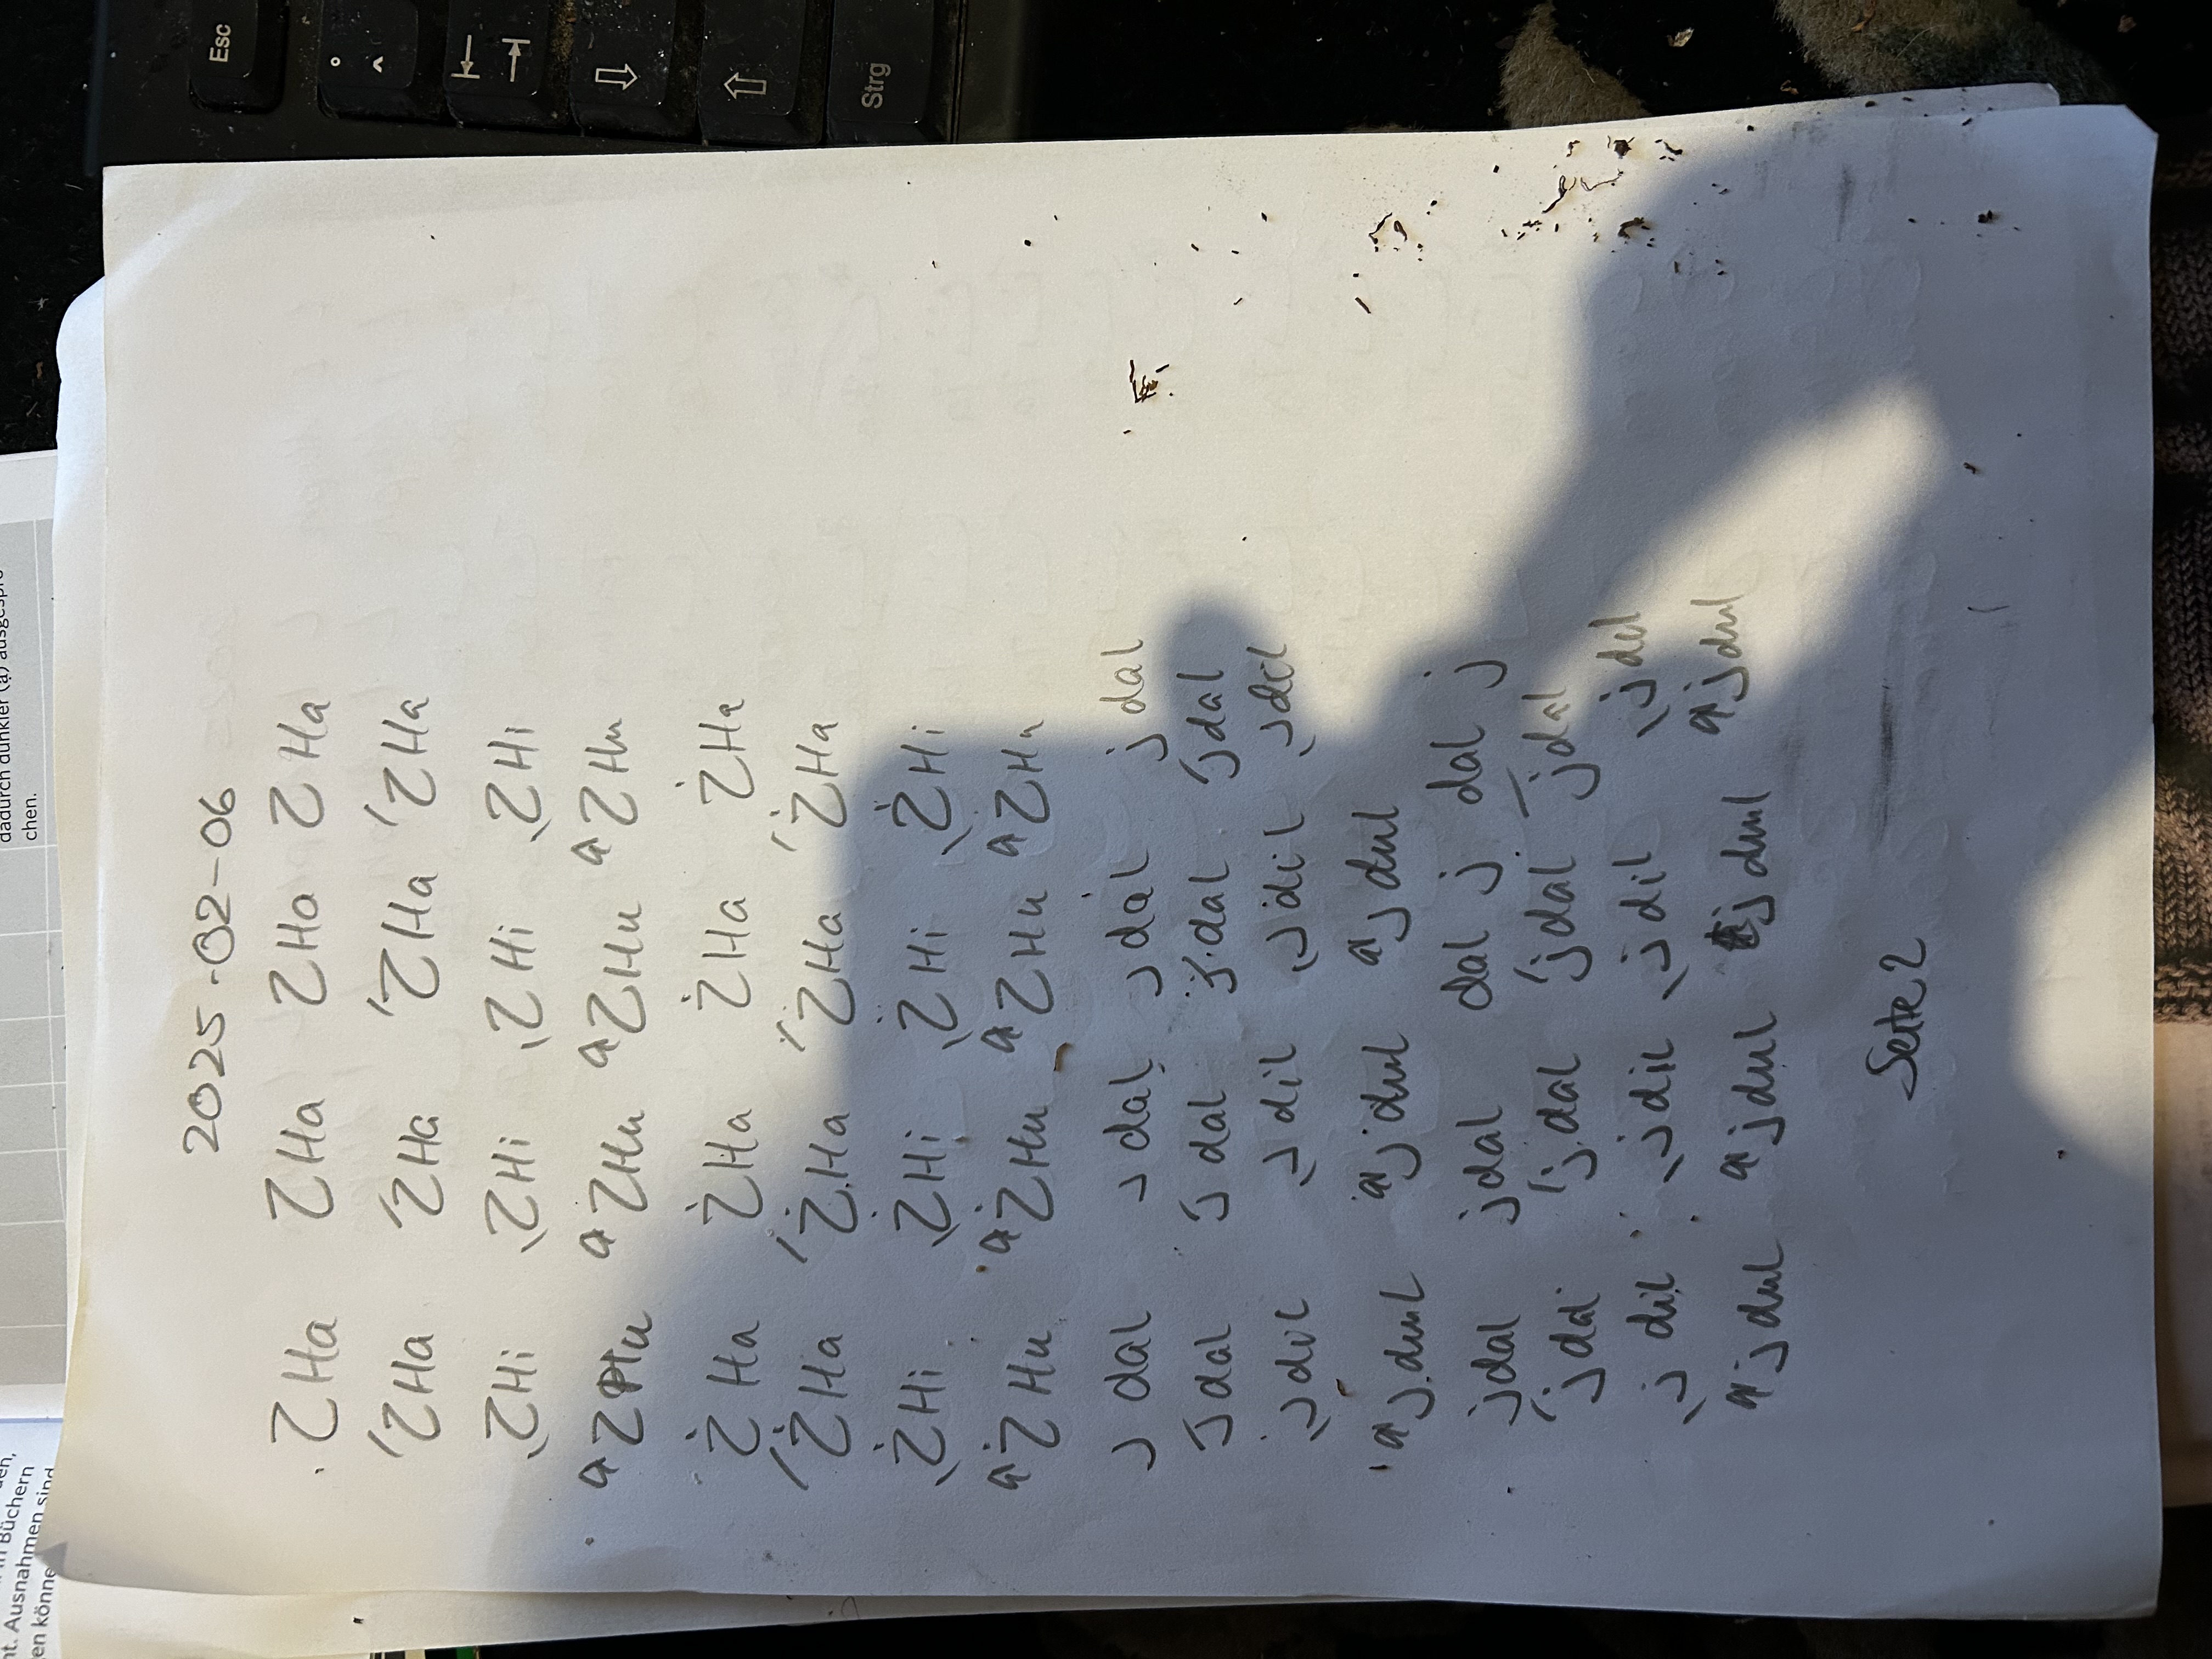 Büchern
nt. Ausnahmen sind
en könne
dadurch dunkler (ạ) ausgespro-
chen.
2025-02-06
ح Ha ح Ha ح Ha ح Ha
حَ Ha حَ Ha حَ Ha حَ Ha
حِ Hi حِ Hi حِ Hi حِ Hi
حُ Hu حُ Hu حُ Hu حُ Hu
خ Ha خ Ha خ Ha خ Ha
خَ Ha خَ Ha خَ Ha خَ Ha
خِ Hi خِ Hi خِ Hi خِ Hi
خُ Hu خُ Hu خُ Hu خُ Hu
د dal د dal د dal ذ dal
دَ dal دَ dal دَ dal دَ dal
دِ dil دِ dil دِ dil دِ dil
دُ dul دُ dul دُ dul
ذ dal ذ dal dal ذ dal ذ
ذَ dal ذَ dal ذَ dal ذَ dal
ذِ dil ذِ dil ذِ dil ذِ dil
ذُ dul ذُ dul ذ dul ذُ dul
Seite 2
Esc
°
^
Strg